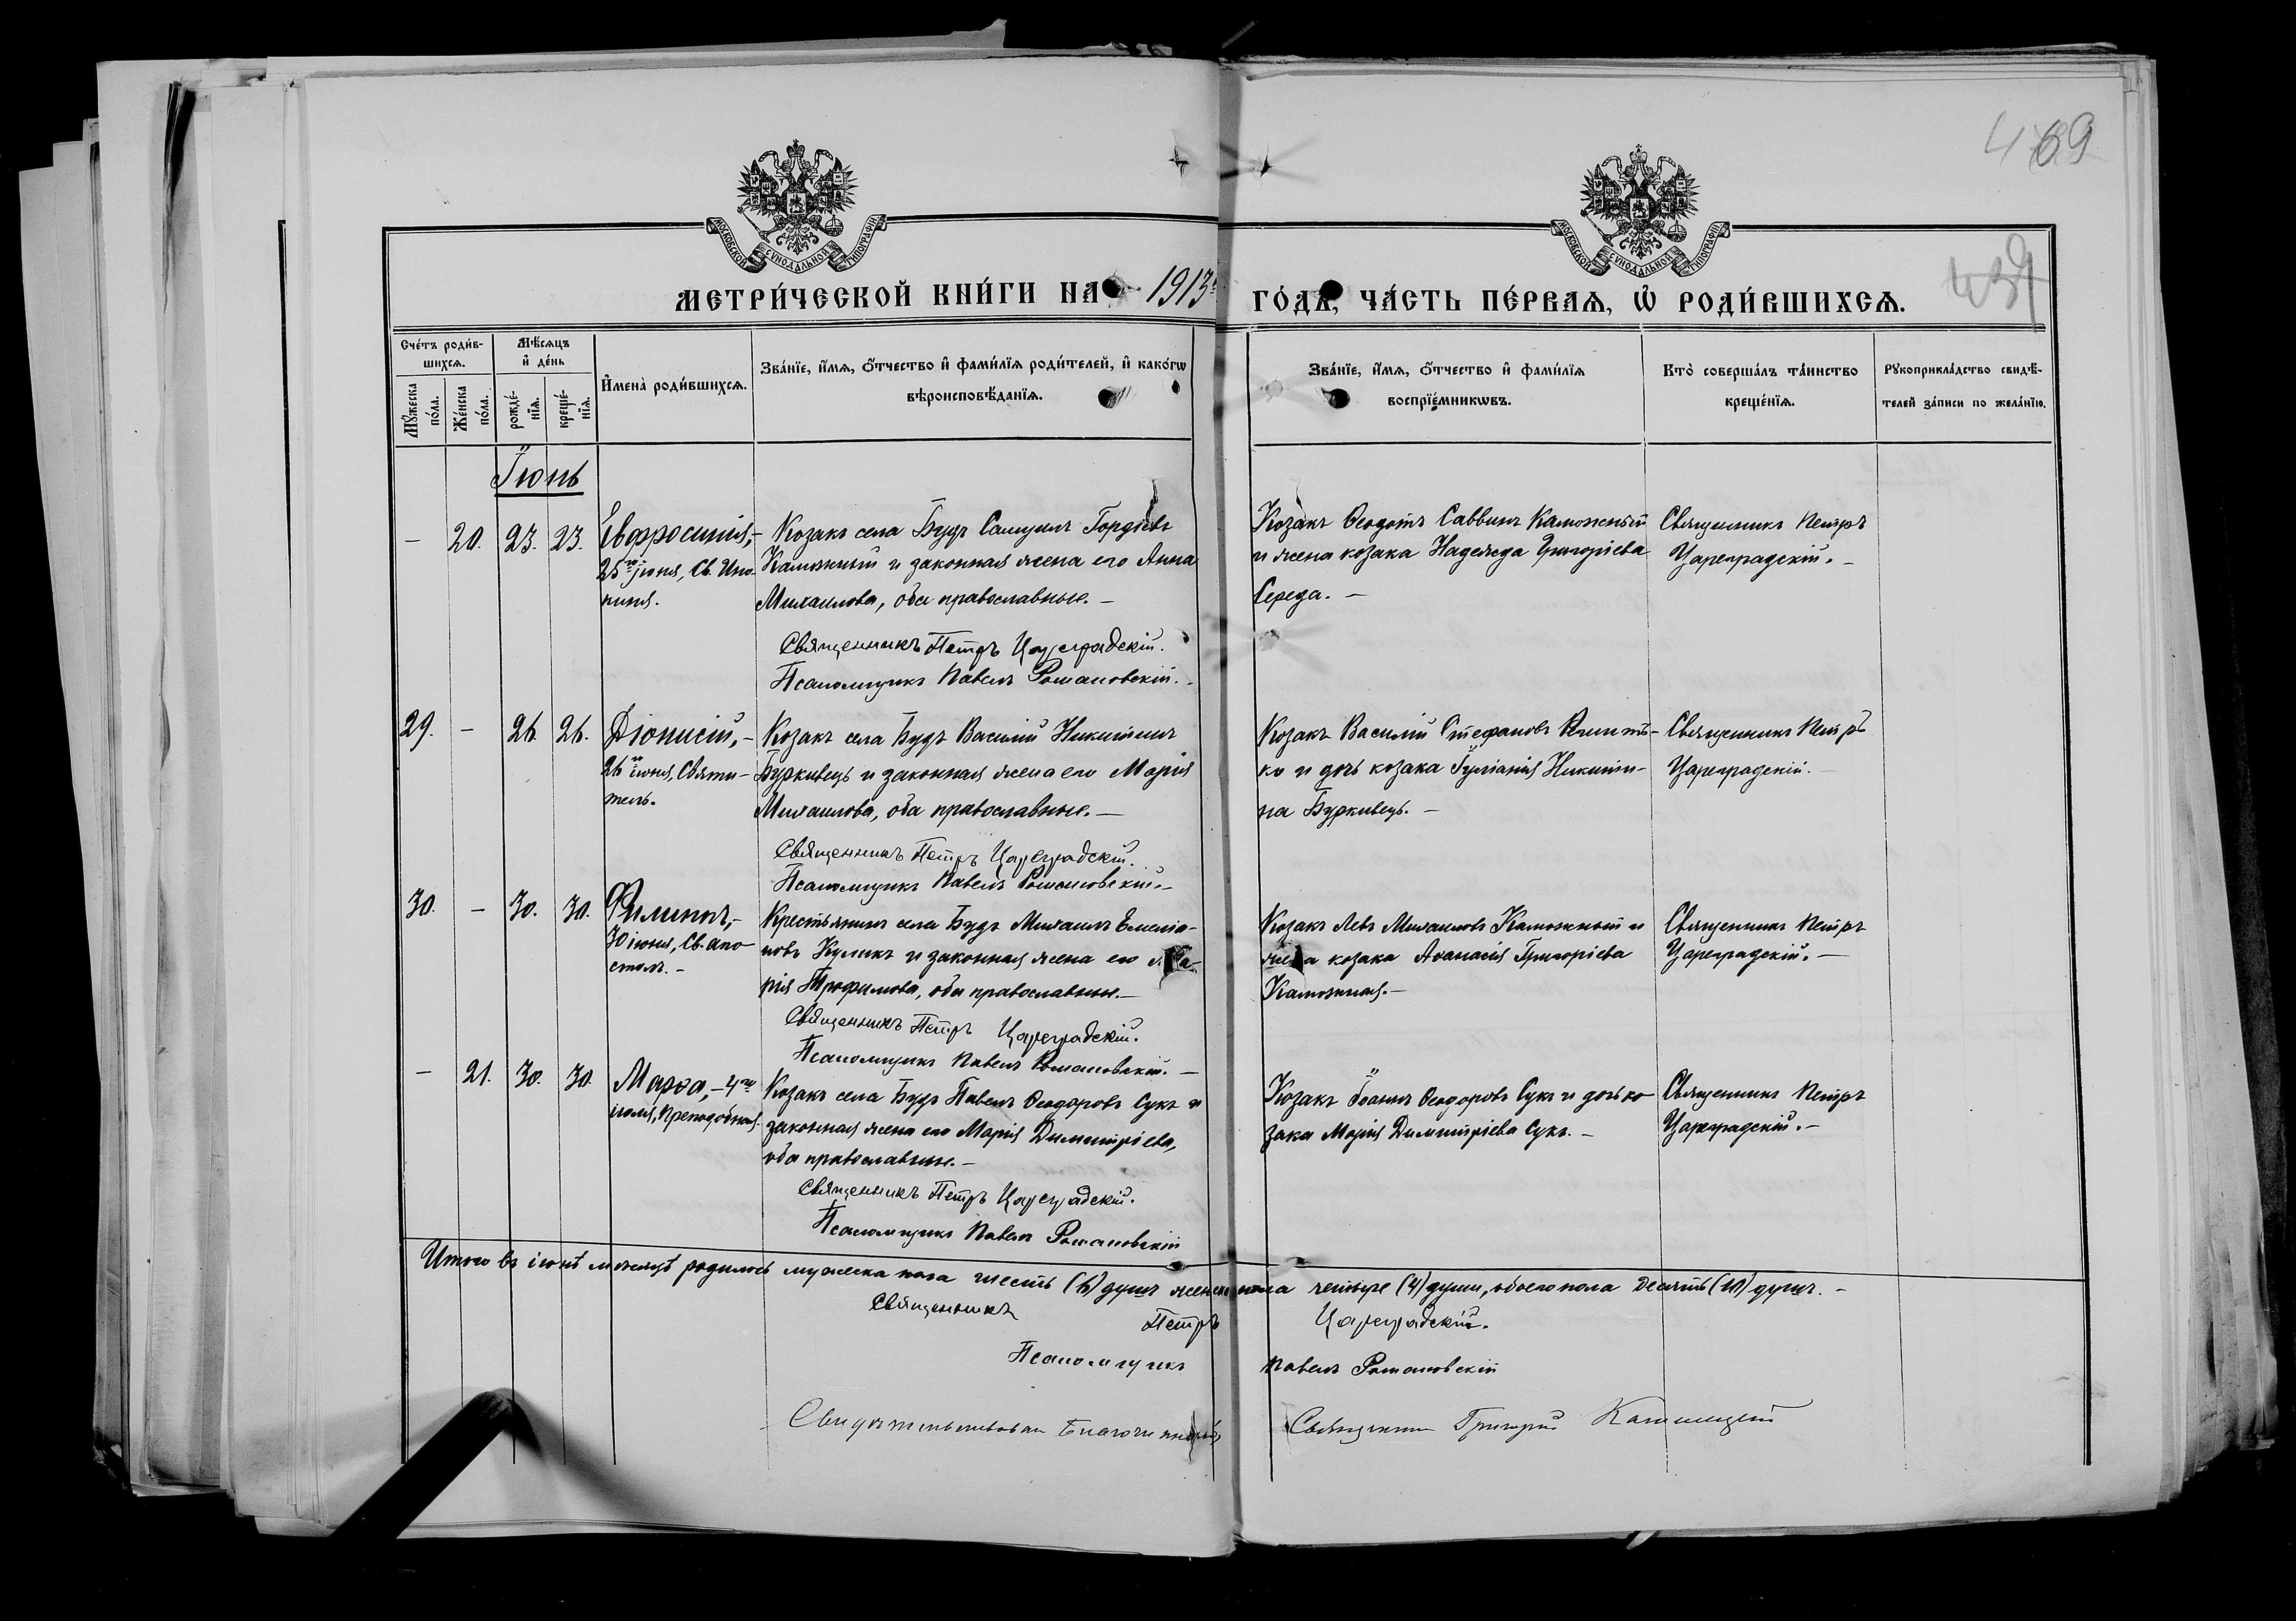 469
439
МОСКОВСКОЙ СѴНОДАЛЬНОЙ ТИПОГРАФІИ
МОСКОВСКОЙ СѴНОДАЛЬНОЙ ТИПОГРАФІИ
МЕТРИ́ЧЕСКОЙ КНИ́ГИ НА 1913 ГО́ДЪ, ЧА́СТЬ ПЕ́РВАѦ, Ѽ РОДИ́ВШИХСѦ.
Сче́тъ роди́в-
шихсѧ.
Мѣ́сѧцъ
и҆ де́нь
Мꙋ́жеска
по́ла.
Же́нска
по́ла.
рожде́-
нїѧ.
креще́-
нїѧ.
И҆мена̀ роди́вшихсѧ.
Зва́нїе, и҆́мѧ, ѻ҆́тчество и҆ фами́лїѧ роди́телей, и҆ како́гѡ
вѣроисповѣ́данїѧ.
Зва́нїе, и҆́мѧ, ѻ҆́тчество и҆ фами́лїѧ
воспрїе́мникѡвъ.
Кто̀ соверша́лъ та́инство
креще́нїѧ.
Рꙋкоприкла́дство свидѣ́-
телей за́писи по жела́нїю.
Іюнь
— 20. 23. 23. Евфросинія,—
25го іюня, Св. Ино-
киня.
Козакъ села Будъ Самуилъ Гордіевъ
Каможный и законная жена его Анна
Михаилова, оба православные. —
Священникъ Петръ Цареградскій.
Псаломщикъ Павелъ Романовскій. —
Козакъ Ѳеодотъ Саввинъ Каможный
и жена козака Надежда Григоріева
Середа. —
Священникъ Петръ
Цареградскій. —
29. — 26. 26. Діонисій,—
26 іюня, Святи-
тель.
Козакъ села Будъ Василій Никитинъ
Буркивецъ и законная жена его Марія
Михаилова, оба православные. —
Священникъ Петръ Цареградскій.
Псаломщикъ Павелъ Романовскій. —
Козакъ Василій Стефановъ
ко и дочь козака Іуліанія Никити-
на Буркивецъ. —
Священникъ Петръ
Цареградскій. —
30. — 30. 30. Филиппъ,—
30 іюня, Св. апо-
столъ. —
Крестьянинъ села Будъ Михаилъ Емеліа-
новъ Куликъ и законная жена его Ма-
рія Трофимова, оба православные. —
Священникъ Петръ Цареградскій.
Псаломщикъ Павелъ Романовскій. —
Козакъ Левъ Михаиловъ Каможный и
жена козака Аѳанасія Григоріева
Каможная. —
Священникъ Петръ
Цареградскій. —
— 21. 30. 30. Марѳа,—4го
іюля, Преподобная.
Козакъ села Будъ Павелъ Ѳеодоровъ Сукъ и
законная жена его Марія Димитріева,
оба православные. —
Священникъ Петръ Цареградскій.
Псаломщикъ Павелъ Романовскій
Козакъ Іоаннъ Ѳеодоровъ Сукъ и дочь ко-
зака Марія Димитріева Сукъ. —
Священникъ Петръ
Цареградскій. —
Итого въ іюнѣ мѣсяцѣ родилось мужеска пола шесть (6) душъ женска пола четыре (4) души, обоего пола десять (10) душъ. —
Священникъ Петръ Цареградскій.
Псаломщикъ Павелъ Романовскій
Свидѣтельствовалъ Благочинный, Священникъ Григорій